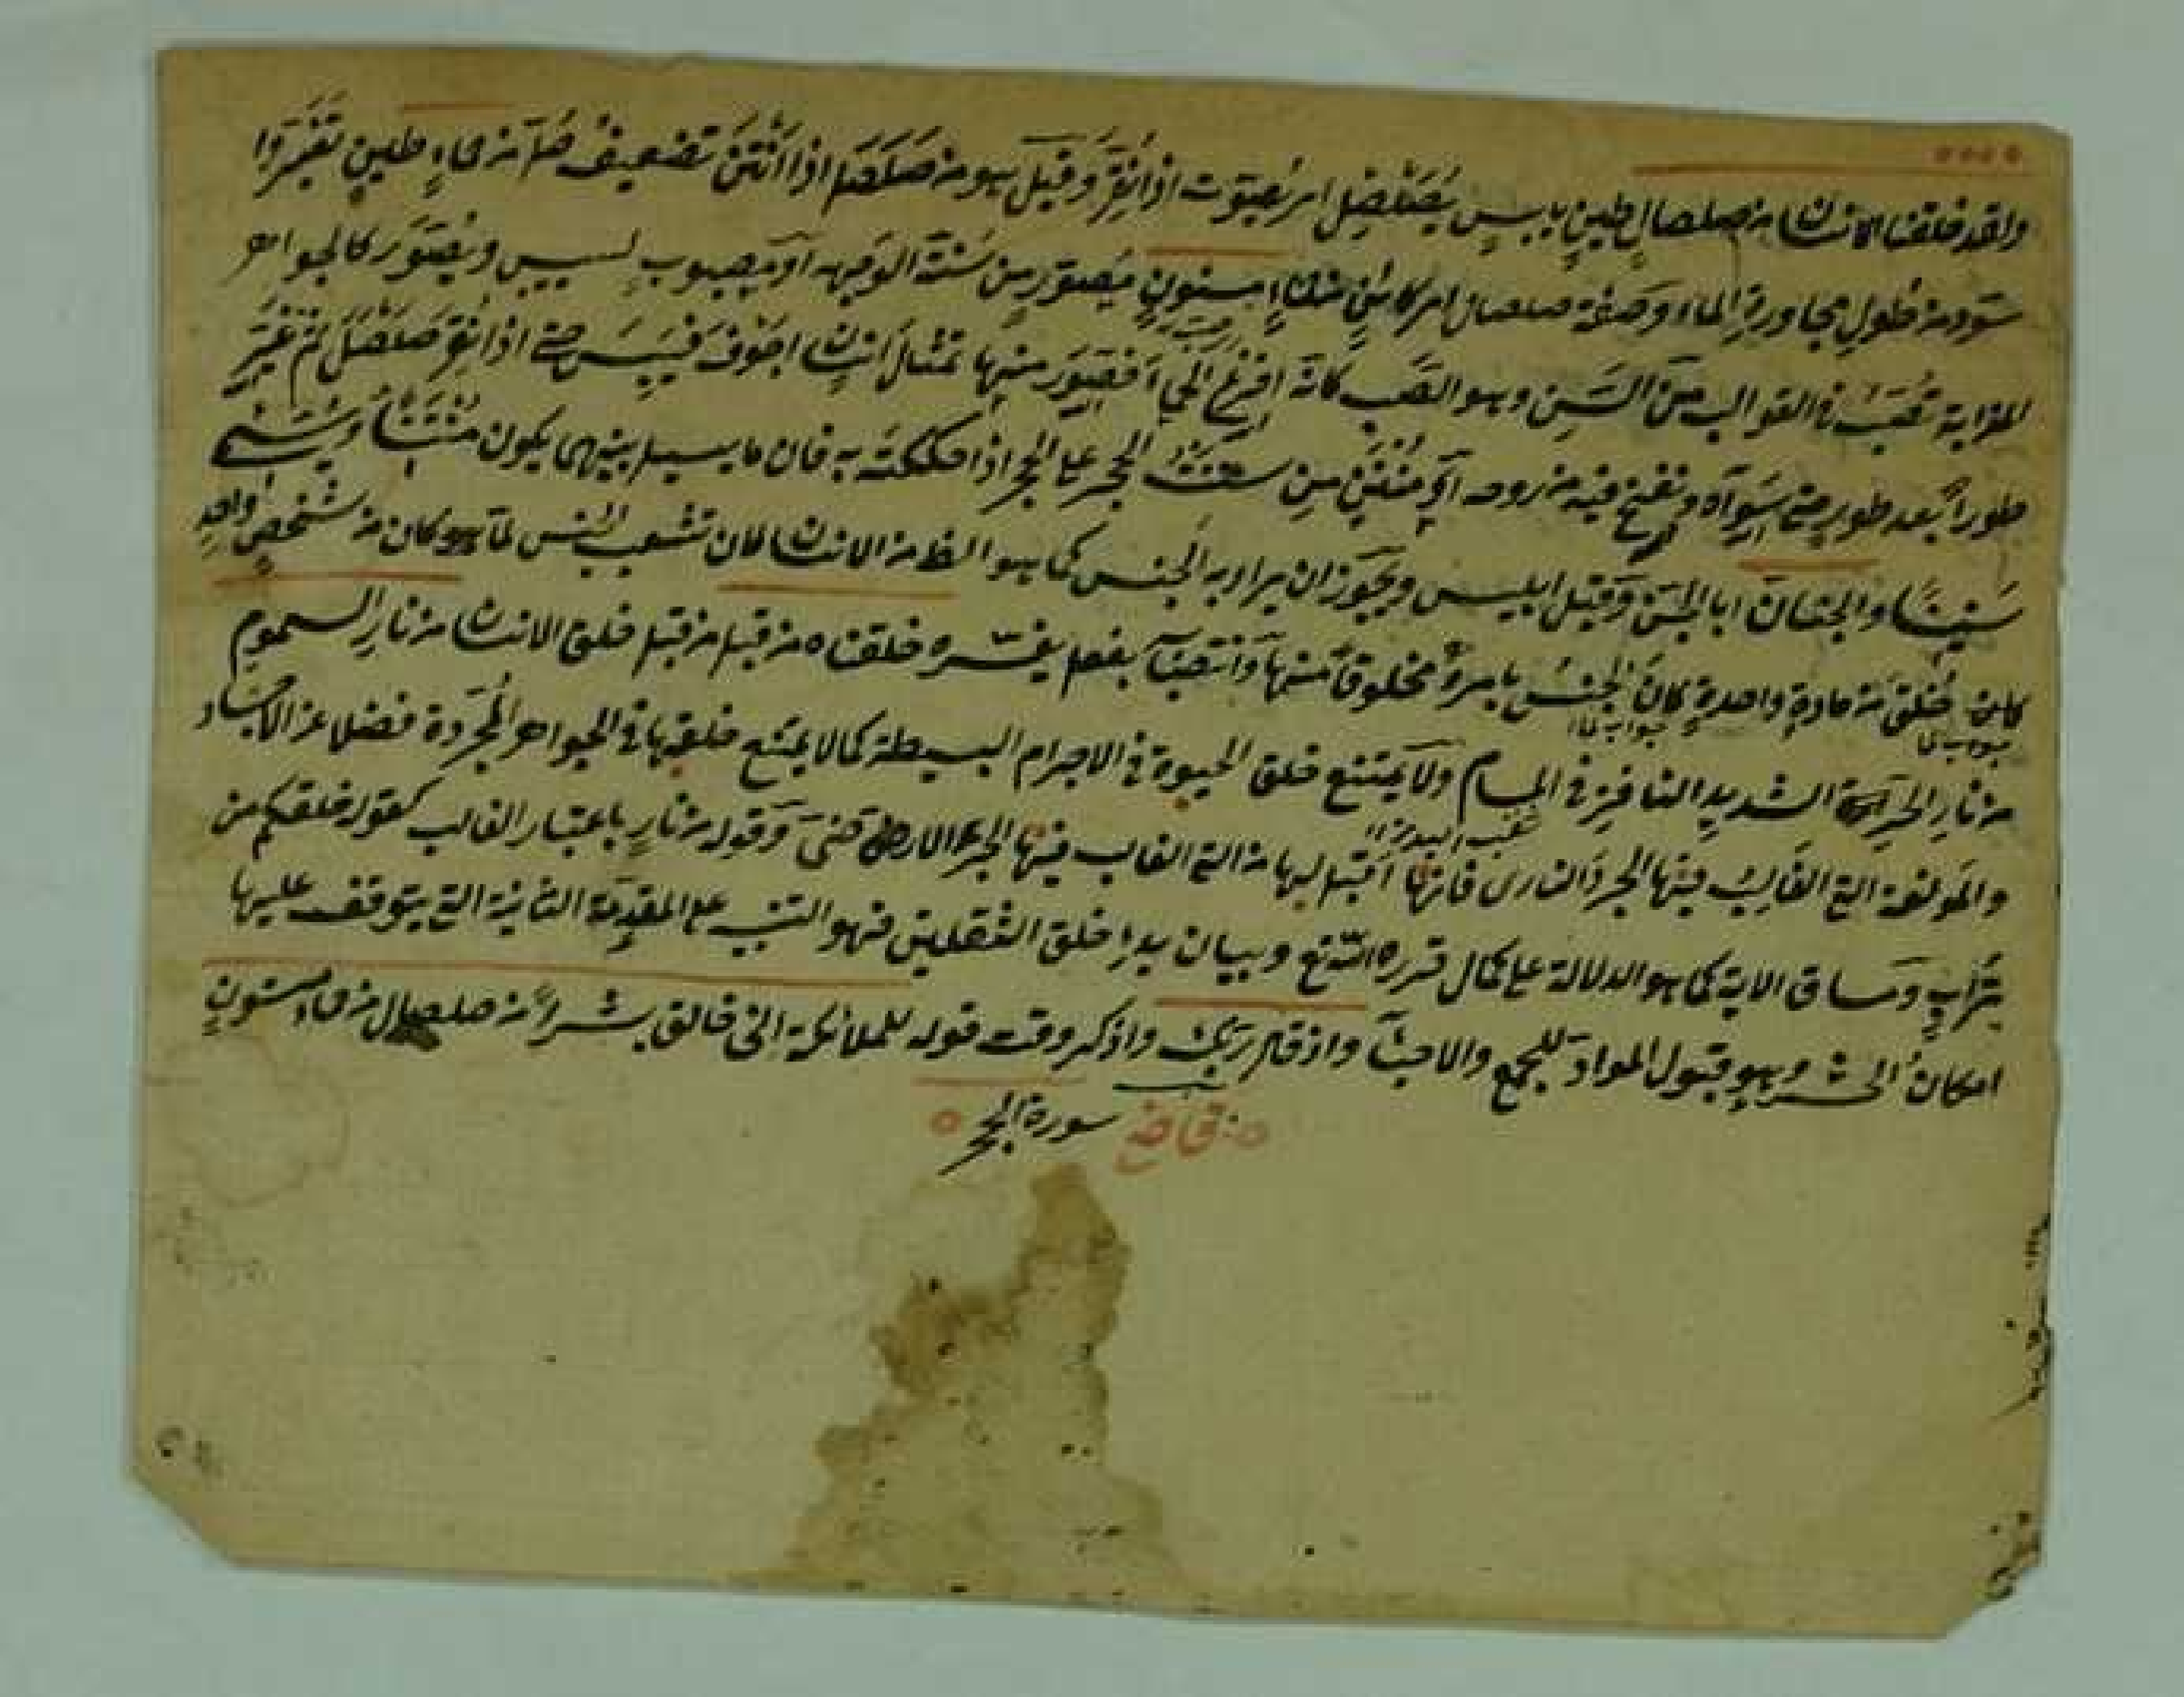 ولقد خلقنا الانسان من صلصال طين يابس يصلصل اى يصوت اذا نقر وقيل هو من صلصل اذا انتن تضعيف صل من حماء طين تغير وا
سود من طول مجاورة الماء وصفة صلصال اى كائن من حماء مسنون مصور من سنة الوجه او مصبوب لييبس ويصور كالجواهر
المذابة تصب فى القوالب من السن وهو الصب كانه افرغ الحماء فصور منها تمثال انسان اجوف فيبس حتى اذا نقر صلصل ثم غير
طورا بعد طور حتى سواه ونفخ فيه من روحه او منتن من سننت الحجر على الحجر اذا حككته به فان ما يسيل بينهما يكون منتنا ويسمى
سنينا والجان ابا الجن وقيل ابليس ويجوز ان يراد به الجنس كما هو الظ من الانسان لان تشعب الجنس لما كان من شخص واحد
خلق من مادة واحدة كان الجنس باسره مخلوقا منها وانتصابه بفعل يفسره خلقناه من قبل من قبل خلق الانسان من نار السموم
جواب لما
من نار الحر الشديد النافذ فى المسام ولا يمتنع خلق الحيوة فى الاجرام البسيطة كما لا يمتنع خلقها فى الجواهر المجردة فضلا عن الاجساد
والمؤلفة التى الغالب فيها الجزء النارى فانها اقبل لها من التى الغالب فيها الجزء الارضى وقوله من نار باعتبار الغالب كقوله خلقكم من
تراب ومساق الاية كما هو الدلالة على كمال قدرة الله تع وبيان بدء خلق الثقلين فهو التنبيه على المقدمة الثانية التى يتوقف عليها
امكان الحشر وهو قبول المواد للجمع والاحياء واذ قال ربك واذكر وقت قوله للملائكة انى خالق بشرا من صلصال من حماء مسنون
قاضى سورة الحجر